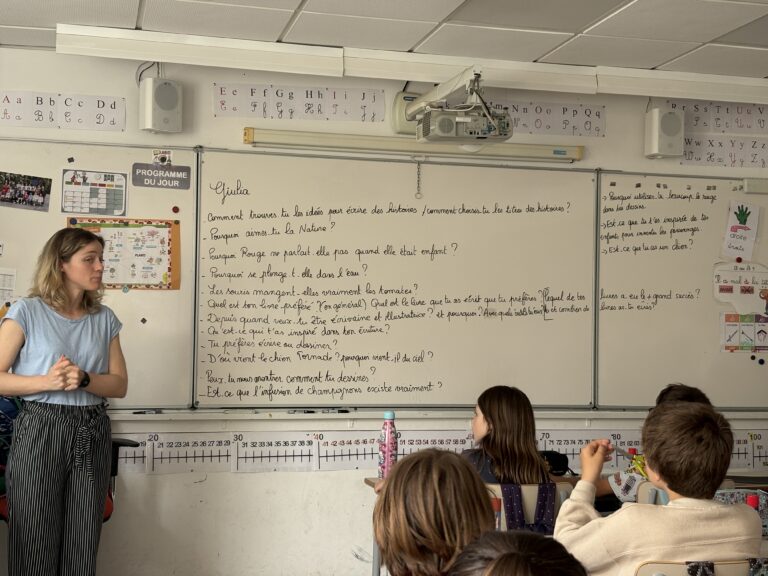 A a B b C c D d
E e F f G g H h I i J j
N n O o P p Q q
R r S s T t U u V v
W w X x Y y Z z
PROGRAMME
DU JOUR
Giulia
Comment trouves-tu les idées pour écrire des histoires / comment choisis-tu les titres des histoires ?
- Pourquoi aimes-tu la Nature ?
- Pourquoi Rouge ne parlait-elle pas quand elle était enfant ?
- Pourquoi se plonge-t-elle dans l'eau ?
- Les souris mangent-elles vraiment les tomates ?
- Quel est ton livre préféré (en général) Quel est le livre que tu as écrit que tu préfères ? lequel de tes livres a eu le + grand succès ?
- Depuis quand veux-tu être écrivaine et illustratrice ? et pourquoi ? Avec quels outils et combien de livres as-tu écris ?
- Qu'est-ce qui t'as inspiré dans ton écriture ?
- Tu préfères écrire ou dessiner ?
- D'où vient le chien Tornade ? pourquoi vient-il du ciel ?
- Peux-tu nous montrer comment tu dessines ?
- Est-ce que l'infusion de champignons existe vraiment ?
→ Pourquoi utiliser-tu beaucoup le rouge
dans tes dessins.
→ Est-ce que tu t'es inspirée de tes
enfants pour inventer les personnages
→ Est-ce que tu as un chien ?
droite
bras
20 21 22 23 24 25 26 27 28 29 30 31 32 33 34 35 36 37 38 39 40 41 42 43 44 45
80
90
100